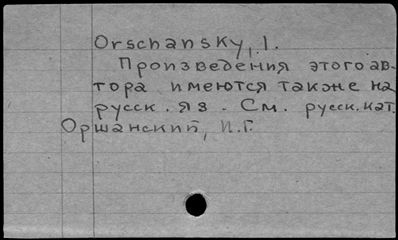 Orschansky, I.
Произведения этого ав-
тора имеются также на
русск. яз. См. русск. кат.
Оршанский, И.Г.